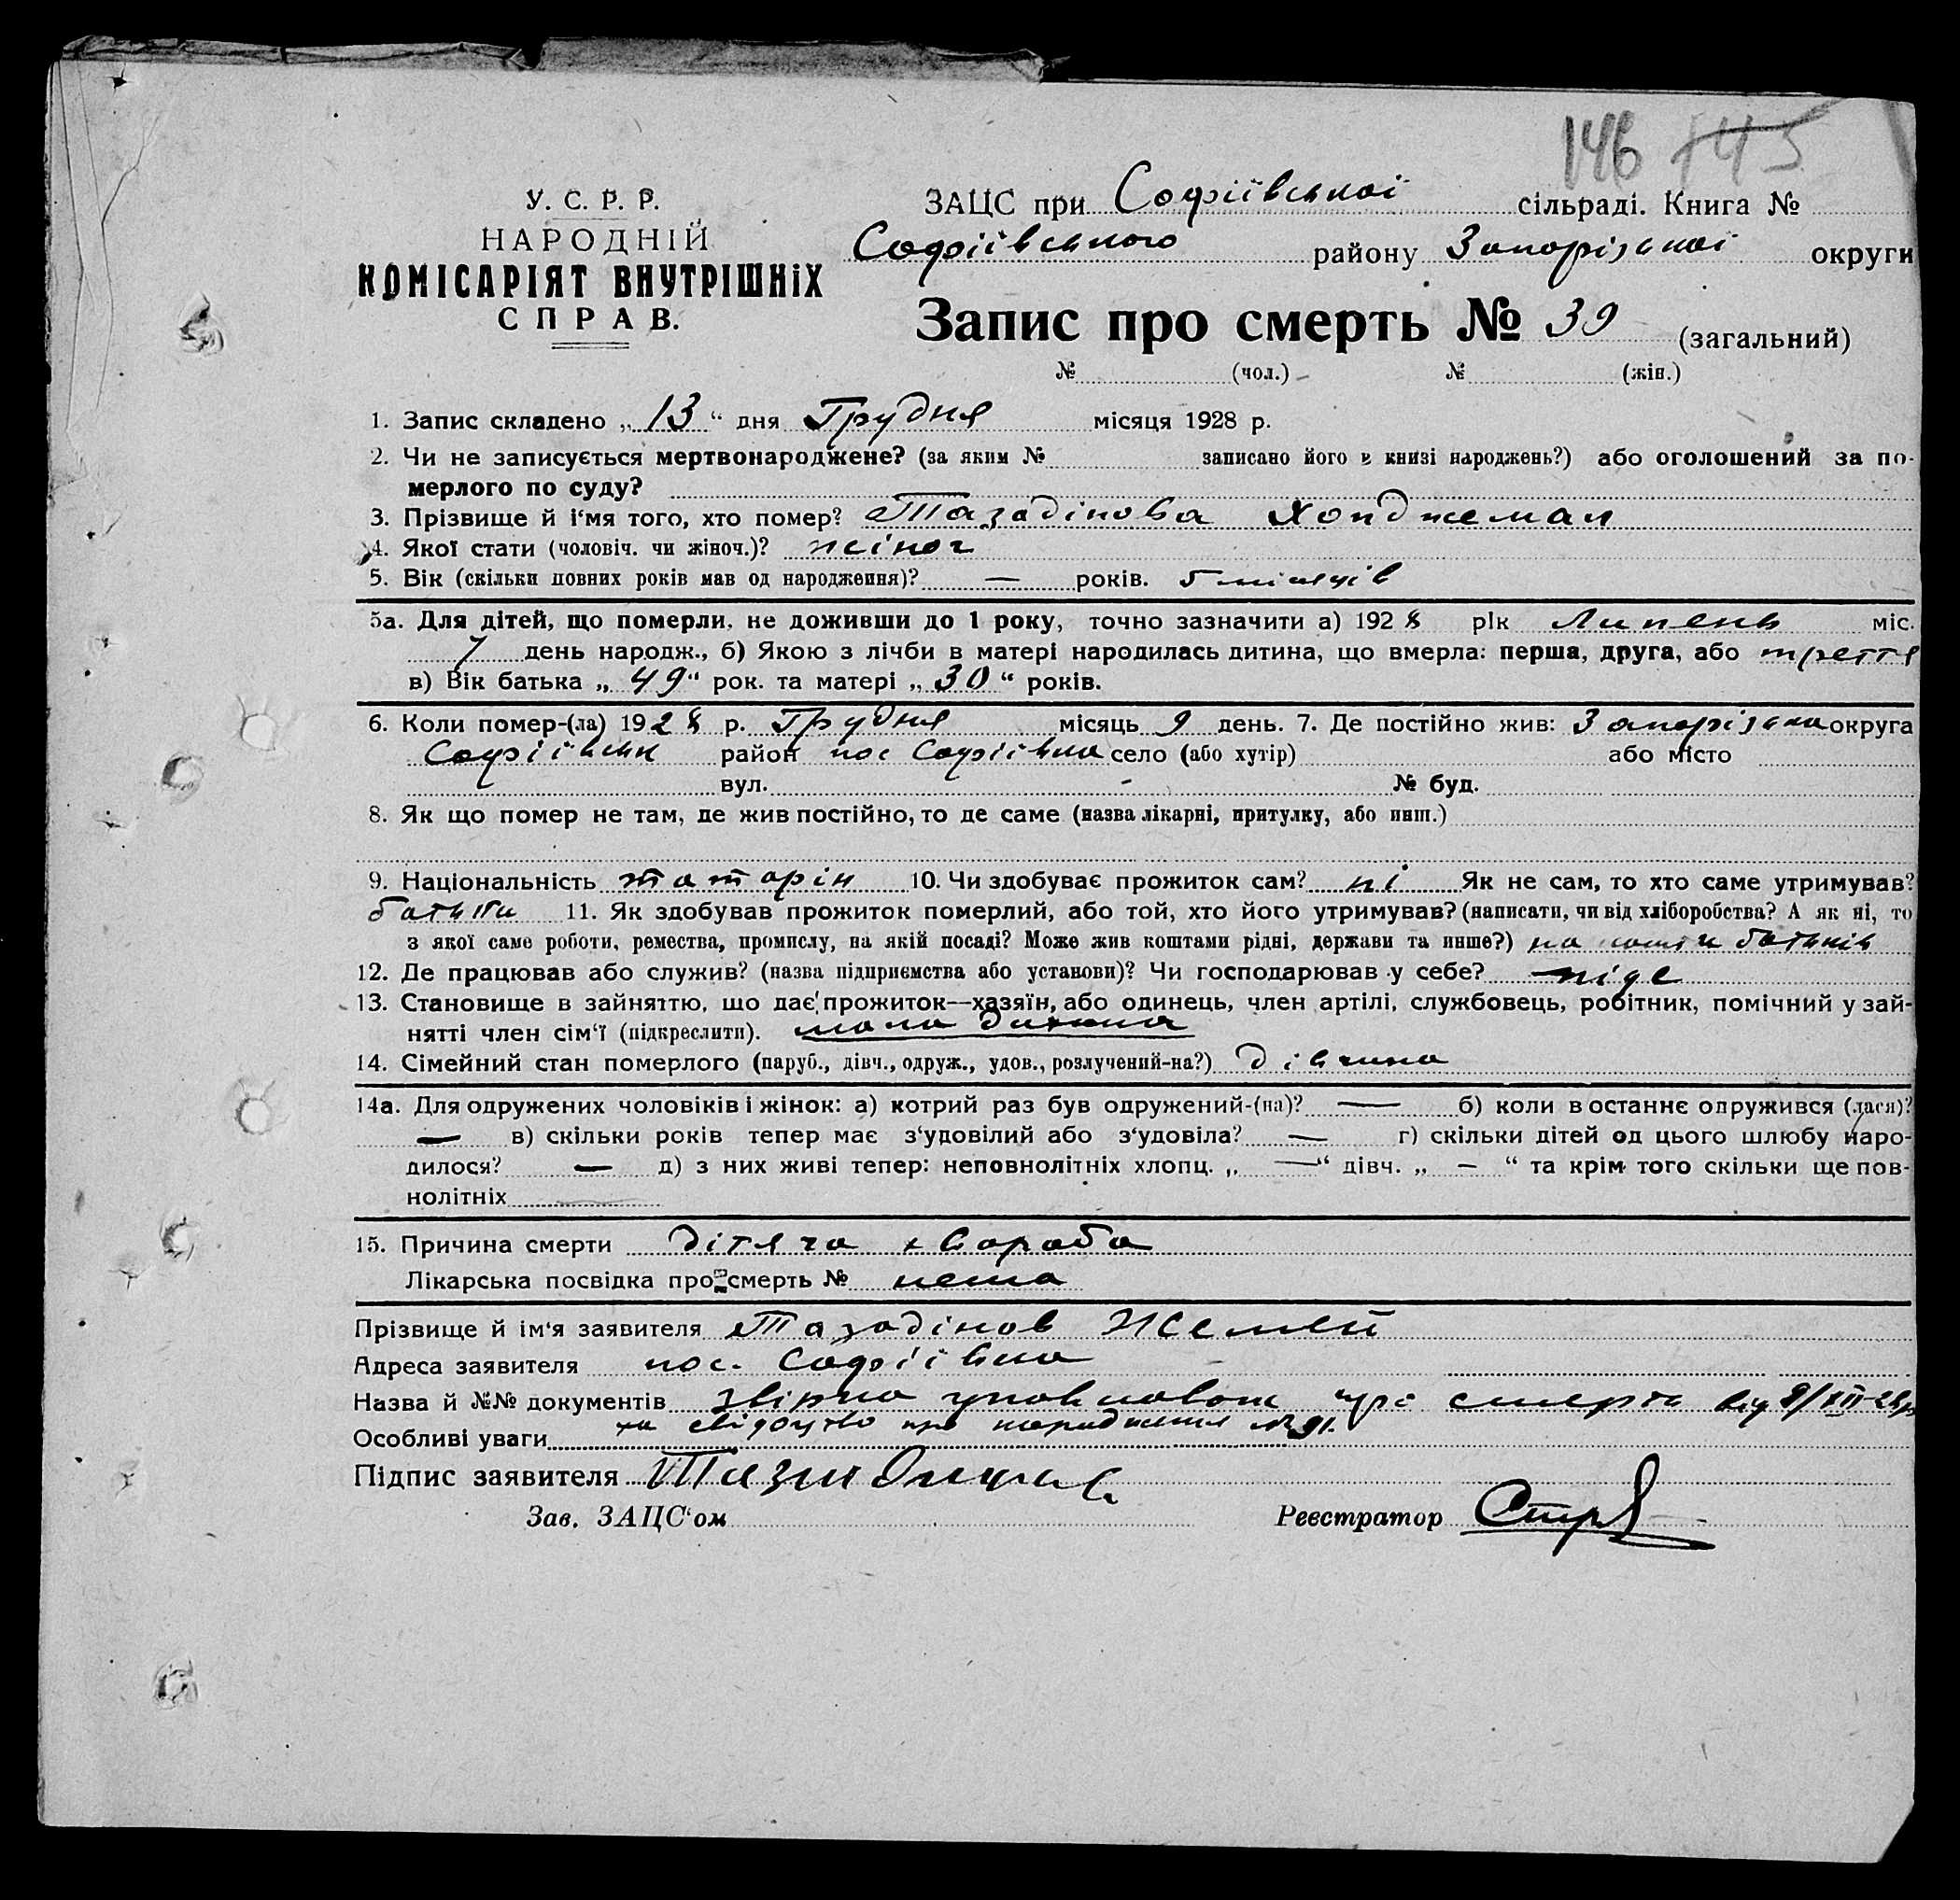 146 145
У. С. Р. Р.
НАРОДНІЙ
КОМІСАРІЯТ ВНУТРІШНІХ
СПРАВ.
ЗАЦС при Софіївської сільраді. Книга №
Софіївського району Запорізької округи
Запис про смерть № 39 (загальний)
№ (чол.) № (жін.)
1. Запис складено „13“ дня Грудня місяця 1928 р.
2. Чи не записується мертвонароджене? (за яким № записано його в книзі народжень?) або оголошений за по-
мерлого по суду?
3. Прізвище й і‘мя того, хто помер? Тазадінова Хопджемал
4. Якої стати (чоловіч. чи жіноч.)? жіноч
5. Вік (скільки повних років мав од народження)? — років. 5 місяців
5а. Для дітей, що померли, не доживши до 1 року, точно зазначити а) 1928 рік Липень міс.
7 день народж., б) Якою з лічби в матері народилась дитина, що вмерла: перша, друга, або третя
в) Вік батька „49“ рок. та матері „30“ років.
6. Коли помер-(ла) 1928 р. Грудня місяць 9 день. 7. Де постійно жив: Запорізька округа
Софіївськ район пос Софіївка село (або хутір) або місто
вул. - № буд.
8. Як що помер не там, де жив постійно, то де саме (назва лікарні, притулку, або инш.)
9. Національність татарін 10. Чи здобуває прожиток сам? ні Як не сам, то хто саме утримував?
батьки 11. Як здобував прожиток померлий, або той, хто його утримував? (написати, чи від хліборобства? А як ні, то
з якої саме роботи, ремества, промислу, на якій посаді? Може жив коштами рідні, держави та инше?) на кошти батьків
12. Де працював або служив? (назва підприємства або установи)? Чи господарював у себе? ніде
13. Становище в зайняттю, що дає прожиток—хазяїн, або одинець, член артілі, службовець, робітник, помічний у зай-
нятті член сім‘ї (підкреслити). мала дитина
14. Сімейний стан померлого (паруб., дівч., одруж., удов., розлучений-на?) дівчина
14а. Для одружених чоловіків і жінок: а) котрий раз був одружений-(на)? — б) коли в останнє одружився (лася)?
— в) скільки років тепер має з‘удовілий або з‘удовіла? — г) скільки дітей од цього шлюбу наро-
дилося? — д) з них живі тепер: неповнолітніх хлопц. „—“ дівч. „—“ та крім того скільки ще пов-
нолітніх
15. Причина смерти Дітяча хвороба
Лікарська посвідка про смерть № нема
Прізвище й ім‘я заявителя Тазадінов Жемей
Адреса заявителя пос. Софіївка
Назва й №№ документів смерть від 9/XII-28р
Особливі уваги та свідоцтво про народження №91.
Підпис заявителя
Зав. ЗАЦС‘ом Реєстратор